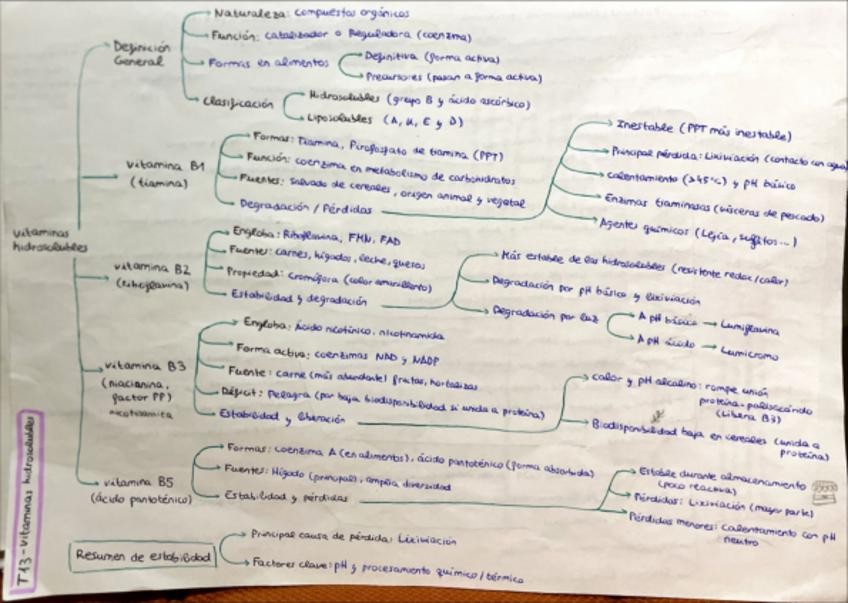 Naturaleza: compuestos orgánicos
Definición General
Función: catalizador o Reguladora (coenzima)
Formas en alimentos
Definitiva (forma activa)
Precursores (pasan a forma activa)
Clasificación
Hidrosolubles (grupo B y ácido ascórbico)
Liposolubles (A, K, E y D)
Vitaminas hidrosolubles
vitamina B1
(tiamina)
Formas: Tiamina, Pirofosfato de tiamina (PPT)
Función: coenzima en metabolismo de carbohidratos
Fuentes: salvado de cereales, origen animal y vegetal
Degradación / Pérdidas
Inestable (PPT más inestable)
Principal pérdida: Lixiviación (contacto con agua)
calentamiento (>45°C) y pH básico
Enzimas tiaminasas (vísceras de pescado)
Agentes químicos (Lejía, sulfitos...)
vitamina B2
(riboflavina)
Engloba: Riboflavina, FMN, FAD
Fuentes: carnes, hígados, leche, quesos
Propiedad: cromófora (color amarillento)
Estabilidad y degradación
Más estable de las hidrosolubles (resistente redox/calor)
Degradación por pH básico y lixiviación
Degradación por luz
A pH básico → Lumiflavina
A pH ácido → Lumicromo
vitamina B3
(niacianina,
factor PP)
nicotinamida
Engloba: Ácido nicotínico, nicotinamida
Forma activa: coenzimas NAD y NADP
Fuente: carne (más abundante) frutas, hortalizas
Déficit: pelagra (por baja biodisponibilidad si unida a proteína)
Estabilidad y liberación
calor y pH alcalino: rompe unión
proteína-polisacárido
(Libera B3)
Biodisponibilidad baja en cereales (unida a
proteína)
vitamina B5
(ácido pantoténico)
Formas: coenzima A (en alimentos), ácido pantoténico (forma absorbida)
Fuentes: Hígado (principal), amplia diversidad
Estabilidad y pérdidas
Estable durante almacenamiento
(poco reactiva)
Pérdidas: Lixiviación (mayor parte)
Pérdidas menores: calentamiento con pH
neutro
Resumen de estabilidad
Principal causa de pérdida: Lixiviación
Factores clave: pH y procesamiento químico/térmico
T13 - vitaminas hidrosolubles